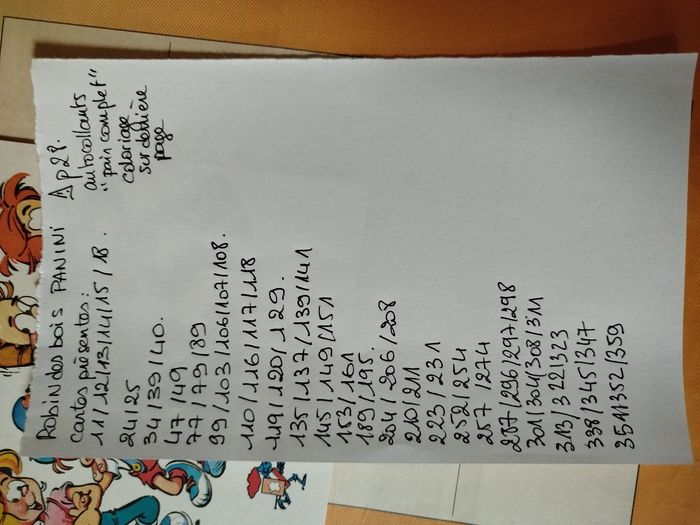 Robin des bois PANINI
cartes présentes:
11/12/13/14/15/18.
24/25
34/39/40.
47/49
77/79/89
99/103/106/107/108.
110/116/117/118
119/120/129.
135/137/139/141
145/149/151
153/161
189/195.
204/206/208
210/211
223/231
252/254
257/274
287/296/297/298
301/304/308/311
313/322/323
338/345/347
351/352/359
p29.
autocollants
"pain complet"
coloriage
sur dernière
page